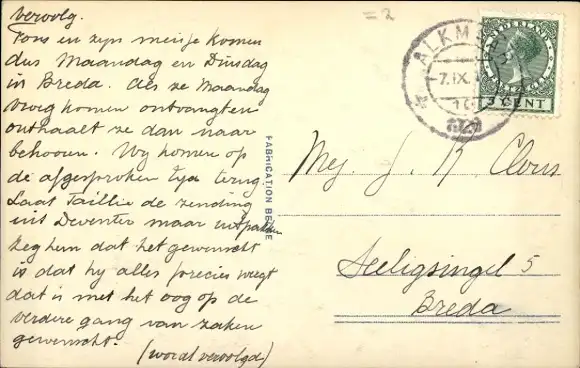 vervolg.
Fons en zijn meisje komen
dus Maandag en Dinsdag
in Breda. Als ze Maandag
vroeg komen ontvangt en
onthaalt ze dan naar
behooren. Wij komen op
de afgesproken tijd terug.
Laat Taillie de zending
uit Deventer maar uitpakken
zeg hem dat het gewenscht
is dat hij alles precies weegt
dat is met het oog op de
verdere gang van zaken
gewenscht.
(wordt vervolgd)
= 2
ALKMAAR
7.IX.
NEDERLAND
3 CENT
FABRICATION BELGE
Mej. J. K. Cloüs
Seeligsingel 5
Breda